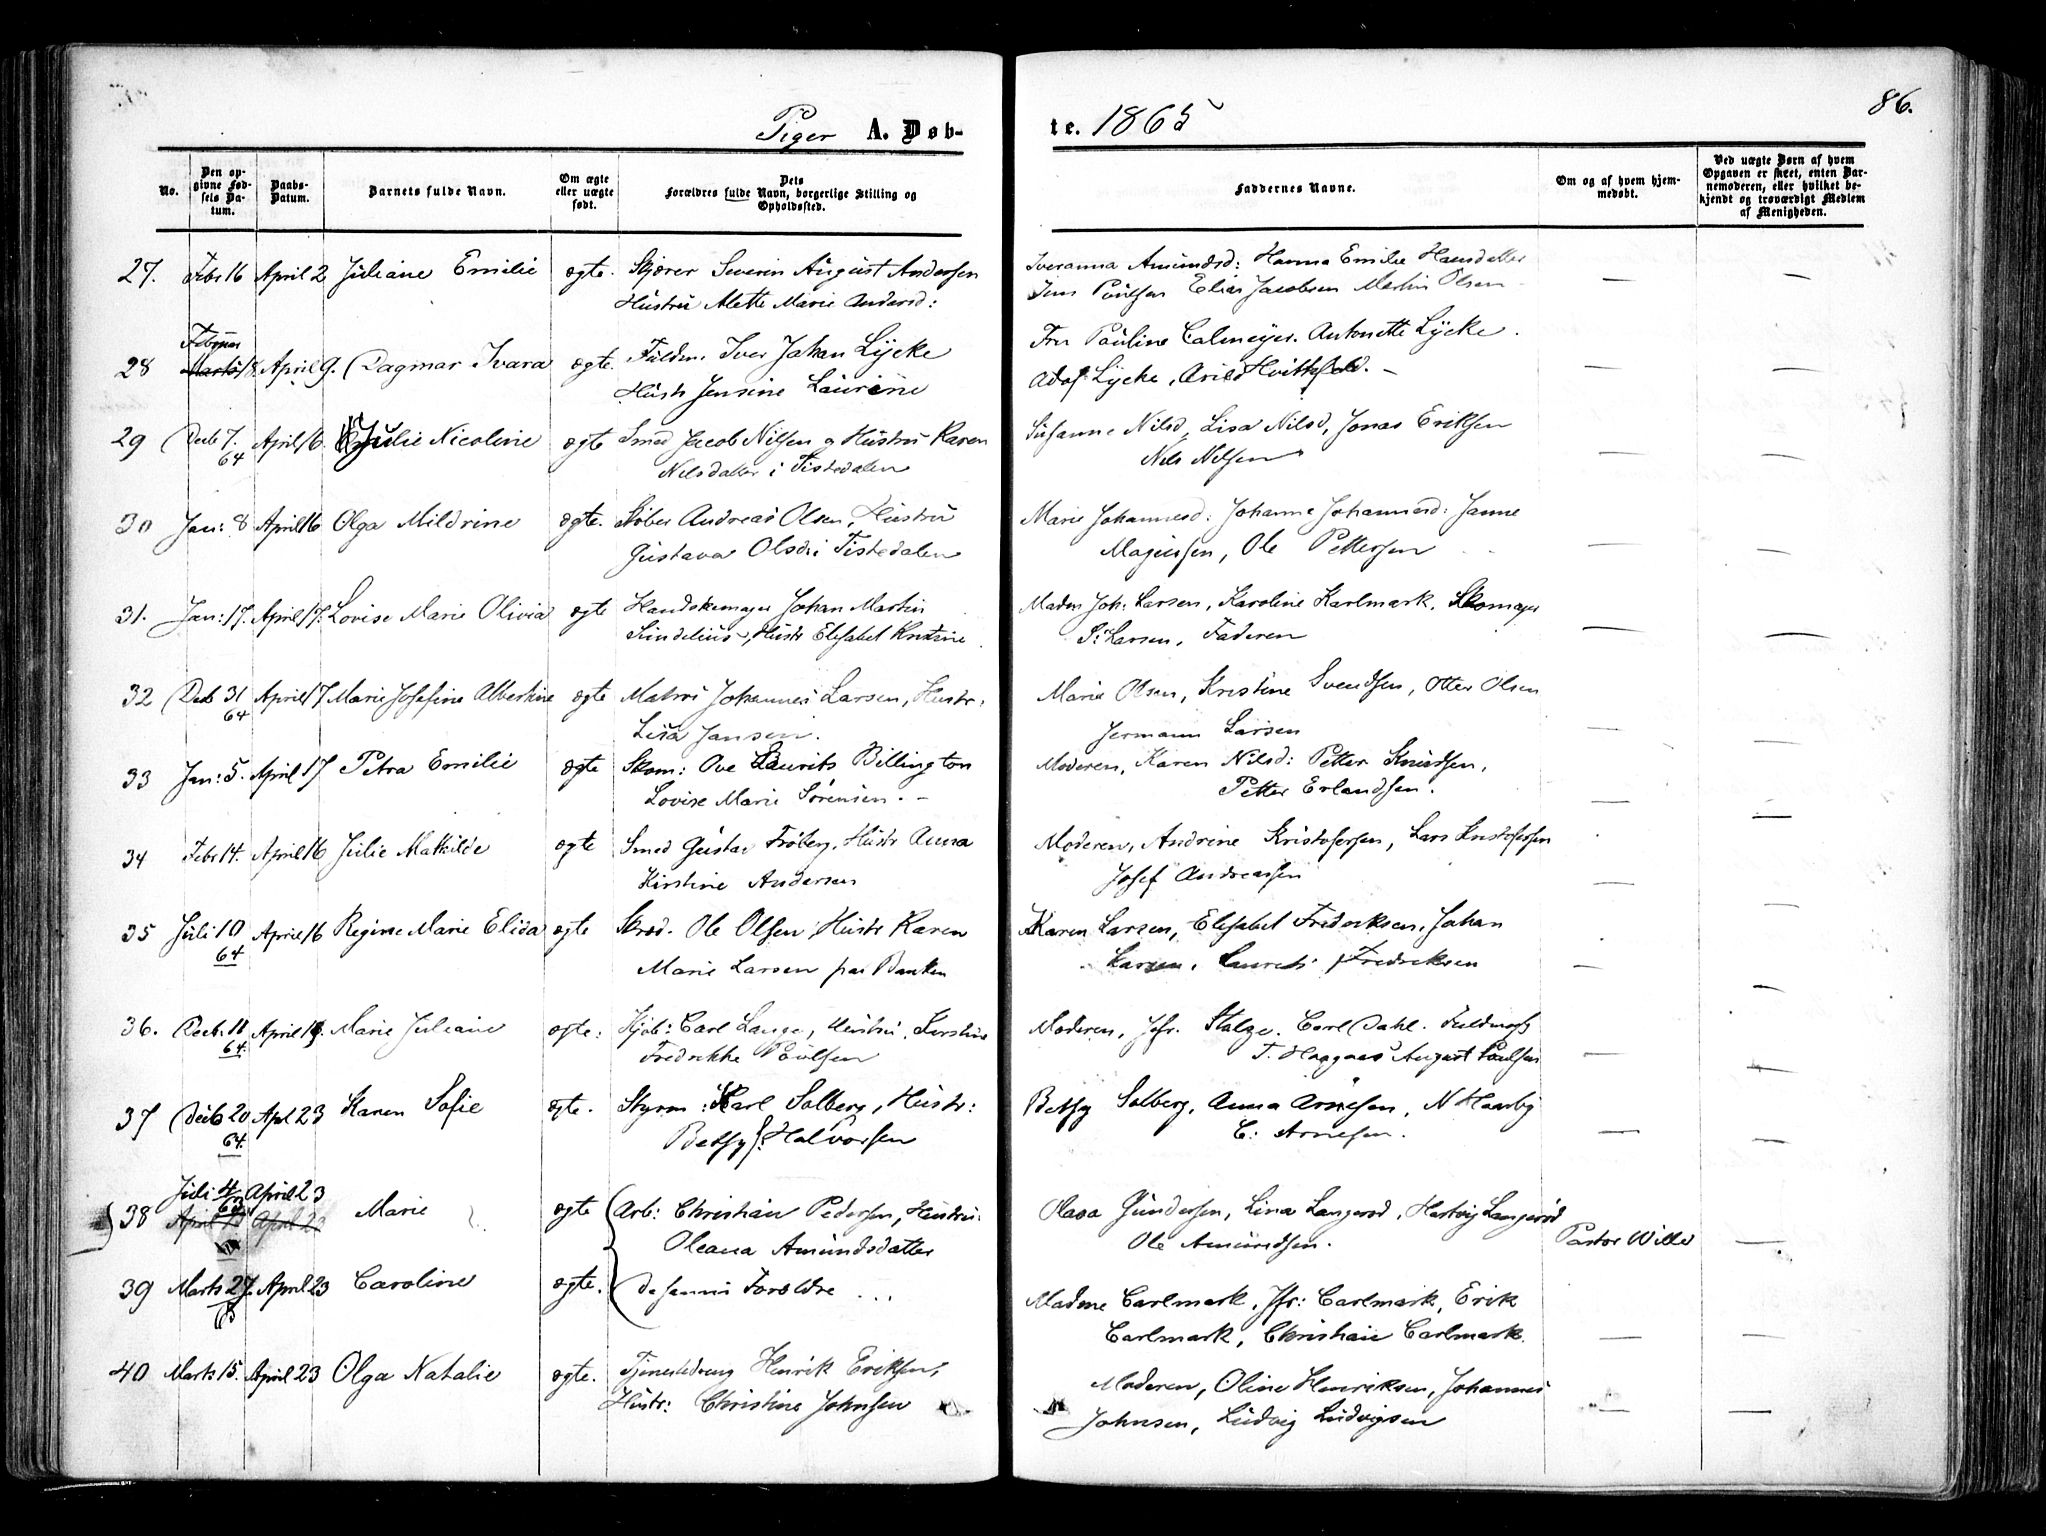 Piger A. Døb-
te. 1865
86.
No.
Den op-
givne Fød-
sels Da-
tum.
Daabs-
Datum.
Barnets fulde Navn.
Om ægte
eller uægte
født.
Dets
Forældres fulde Navn, borgerlige Stilling og
Opholdssted.
Faddernes Navne.
Om og af hvem hjem-
medøbt.
Ved uægte Børn af hvem
Opgaven er skeet, enten Bar-
nemoderen, eller hvilket be-
kjendt og troværdigt Medlem
af Menigheden.
27. Febr 16 April 2 Juliane Emilie ægte. Skjærer Severin August Andersen
Hustru Mette Marie Andersd:
Iveranna Amundsd: Hanna Emilie Hansdatter
Jens Poulsen Elias Jacobsen Martin Olsen
Februar
28 Marts 18. April 9. Dagmar Ivara ægte. Fuldm. Iver Johan Lycke
Hustr Jensine Laurine
Fru Pauline Calmeyer. Antonette Lycke.
Adolf Lycke, Arild Hvitfeld. –
29 Decb 7. April 16. Julie Nicoline ægte Smed Jacob Nilsen og Hustru Karen
64 Nilsdatter i Tistedalen
Susanne Nilsd, Lisa Nilsd, Jonas Eriksen
Nils Nilsen
30 Jan: 8 April 16 Olga Mildrine ægte. Støber Andreas Olsen, Hustru
Gustava Olsd. i Tistedalen
Marie Johannesd: Johanne Johannesd: Janne
Magnssen, Ole Pettersen
31. Jan: 17. April 17: Lovise Marie Olivia ægte Handskemager Johan Martin
Sundelius, Hustr Elisabet Kristine
Madm Joh: Larsen, Karoline Karlmark. Skomager
S: Larsen, Faderen
32 Decb 31 April 17 Marie Josefine Albertine ægte Matros Johannes Larsen, Hustr:
64 Lisa Jansen.
Marie Olsen, Kristine Svendsen, Otter Olsen
Jermann Larsen
33 Jan: 5. April 17 Petra Emilie ægte Skom: Ove Laurits Billington
Lovise Marie Sørensen. –
Moderen, Karen Nilsd: Petter Knudsen,
Petter Erlandsen.
34 Febr 14. April 16 Julie Mathilde ægte Smed Gustav Frøberg, Hustr Anna
Kirstine Andersen
Moderen, Andrine Kristofersen, Lars Kristofersen
Josef Andreassen
35 Juli 10 April 16 Regine Marie Elida ægte Skræd. Ole Olsen, Hustr Karen
64 Marie Larsen paa Banken
Karen Larsen, Elisabet Fredriksen, Johan
Larsen, Laurets Fredriksen
36. Decb. 18 April 19. Marie Juliane ægte: Kjøb: Carl Lange, Hustru, Kirstine
64. Fredrikke Poulsen
Moderen, Jfr. Stalze. Carl Dahl. Fuldmæg
T. Haagaas August Poulsen
37 Decb 20 Apl 23 Karen Sofie ægte. Styrm: Karl Solberg, Hustr:
64. Betsy f. Halvorsen
Betsy Solberg, Anna Arnesen, N Haarby
C: Arnesen.
Juli 4 April 23
38 April 13 April 23 Marie ægte Arb: Christian Pedersen, Hustru
Oleana Amundsdatter
Olava Gundersen, Lina Langerød, Hartvig Langerød
Ole Amundsen.
Pastor Wille
39 Marts 27. April 23 Caroline ægte. de samme Forældre ...
65
Madme Carlmark, Jfr: Carlmark, Erik
Carlmark, Christian Carlmark.
40 Marts 15. April 23 Olga Natalie ægte. Tjenestedreng Henrik Eriksen,
Hustr: Christine Johnsen
Moderen, Oline Henriksen, Johannes
Johnsen, Ludvig Ludvigsen